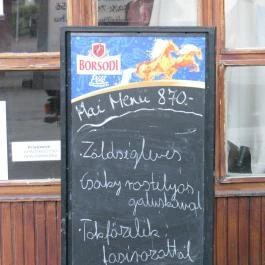 BORSODI
Mai Menü 870.-
• Zöldségleves
Csáky rostélyos
galuskával
• Tökfőzelék
fasirozottal